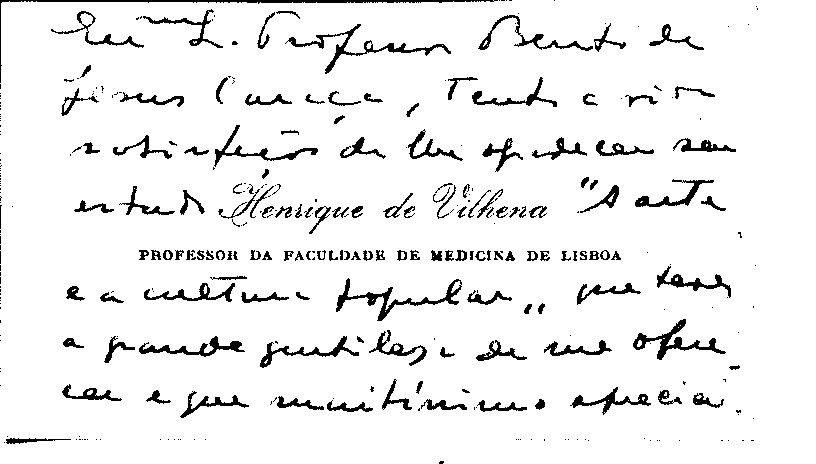 Exmº Sr. Professor Bento de
Jesus Caraça, Tenho a viva
satisfação de lhe agradecer seu
estudo Henrique de Vilhena "A arte
PROFESSOR DA FACULDADE DE MEDICINA DE LISBOA
e a cultura popular", que teve
a grande gentileza de me ofere-
cer e que muitíssimo apreciei.